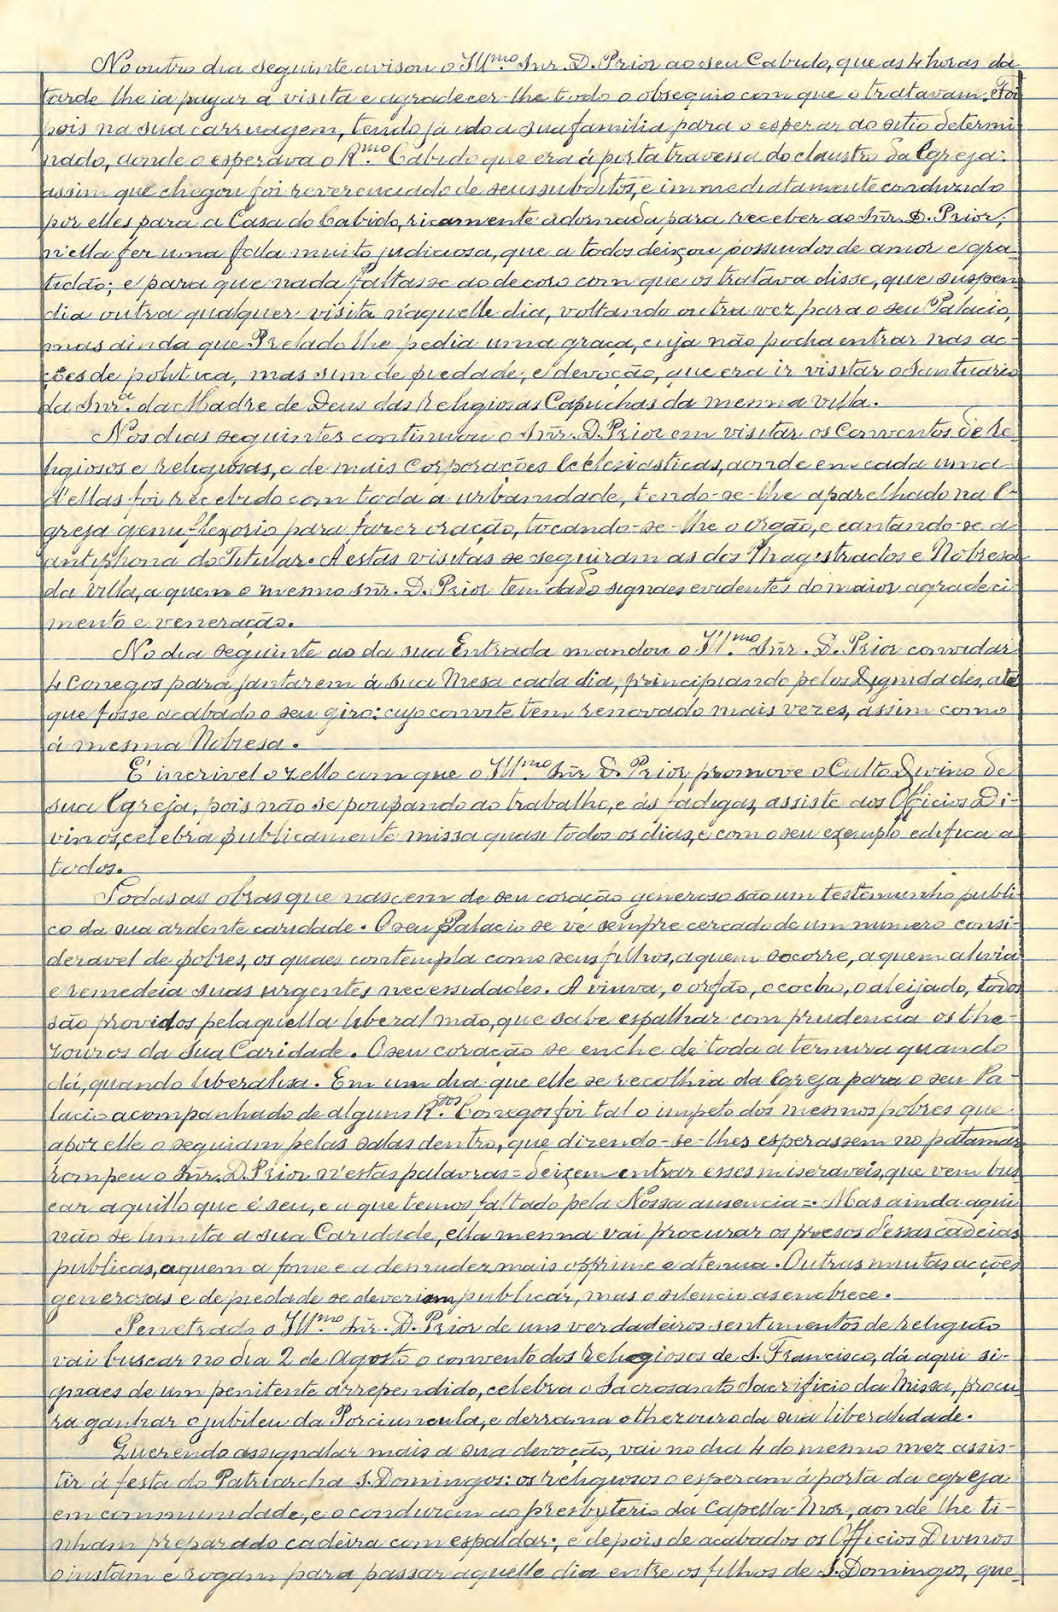 No outro dia seguinte avisou o Ill.mo Snr. D. Prior ao seu Cabido, que as 4 horas da
tarde lhe ia pagar a visita e agradecer-lhe todo o obsequio com que o tratavam. Foi
pois na sua carruagem, tendo já ido a sua familia para o esperar ao sitio determi-
nado, aonde o esperava o R.mo Cabido que era á porta travessa do claustro da Egreja:
assim que chegou foi reverenciado de seus subditos, e immediatamente conduzido
por elles para a Casa do Cabido, ricamente adornada para receber ao Snr. D. Prior;
n'ella fez uma falla muito judiciosa, que a todos deixou possuidos de amor e gra-
tidão; e para que nada faltasse ao decoro com que os tratava disse, que suspen-
dia outra qualquer visita n'aquelle dia, voltando outra vez para o seu Palacio,
mas ainda que Prelado lhe pedia uma graça, cuja não podia entrar nas ac-
ções de politica, mas sim de piedade, e devoção, que era ir visitar o Santuario
da Snr.a da Madre de Deus das Religiosas Capuchas da mesma villa.
Nos dias seguintes continuou o Snr. D. Prior em visitar os Conventos de Re-
ligiosos e religiosas, e de mais Corporações Ecclesiasticas, aonde em cada uma
d'ellas foi recebido com toda a urbanidade, tendo-se-lhe aparelhado na E-
greja genuflexorio para fazer oração, tocando-se-lhe o orgão, e cantando-se a
antiphona do Titular. A estas visitas se seguiram as dos Magistrados e Nobresa
da villa, a quem o mesmo Snr. D. Prior tem dado signaes evidentes do maior agradeci-
mento e veneração.
No dia seguinte ao da sua Entrada mandou o Ill.mo Snr. D. Prior convidar
4 Conegos para jantarem á sua Mesa cada dia, principiando pelos Dignidades, até
que fosse acabado o seu giro: cujo convite tem renovado mais vezes, assim como
á mesma Nobresa.
É incrivel o zello com que o Ill.mo Snr. D. Prior promove o Culto Divino de
sua Egreja, pois não se poupando ao trabalho, e ás fadigas, assiste aos Officios Di-
vinos, celebra publicamente missa quasi todos os dias, e com o seu exemplo edifica a
todos.
Todas as obras que nascem de seu coração generoso são um testemunho publi-
co da sua ardente caridade. O seu Palacio se vê sempre cercado de um numero consi-
deravel de pobres, os quaes contempla como seus filhos, a quem socorre, a quem alivia
e remedeia suas urgentes necessidades. A viuva, o orfão, o cocho, o aleijado, todos
são providos pela quella liberal mão, que sabe espalhar com prudencia os the-
zouros da sua Caridade. O seu coração se enche de toda a ternura quando
dá, quando liberalisa. Em um dia que elle se recolhia da Egreja para o seu Pa-
lacio acompanhado de alguns R.dos Conegos foi tal o impeto dos mesmos pobres que
apoz elle o seguiam pelas salas dentro, que dizendo-se-lhes esperassem no patamar
rompeu o Snr. D. Prior n'estas palavras = deixem entrar esses miseraveis, que vem bus
car aquillo que é seu, e a que temos faltado pela Nossa ausencia =. Mas ainda aqui
não se limita a sua Caridade, ella mesma vai procurar os presos d'essas cadeias
publicas, a quem a fome e a desnudez mais opprime e atenua. Outras muitas acções
generosas e de piedade se deveriam publicar, mas o silencio as encobrece.
Penetrado o Ill.mo Snr. D. Prior de uns verdadeiros sentimentos de religião
vai buscar no dia 2 de Agosto o convento dos Religiosos de S. Francisco, dá aqui si-
gnaes de um penitente arrependido, celebra o Sacrosanto Sacrificio da Missa, procu-
ra ganhar o jubileu da Porciuncula, e derrama o thezouro da sua liberalidade.
Querendo assignalar mais a sua devoção, vai no dia 4 do mesmo mez assis-
tir á festa do Patriarcha S. Domingos: os religiosos o esperam á porta da egreja
em communidade, e o conduzem ao presbyterio da Capella-Mor, aonde lhe ti-
nham preparado cadeira com espaldar; e depois de acabados os Officios Divinos
o instam e rogam para passar aquelle dia entre os filhos de S. Domingos, que